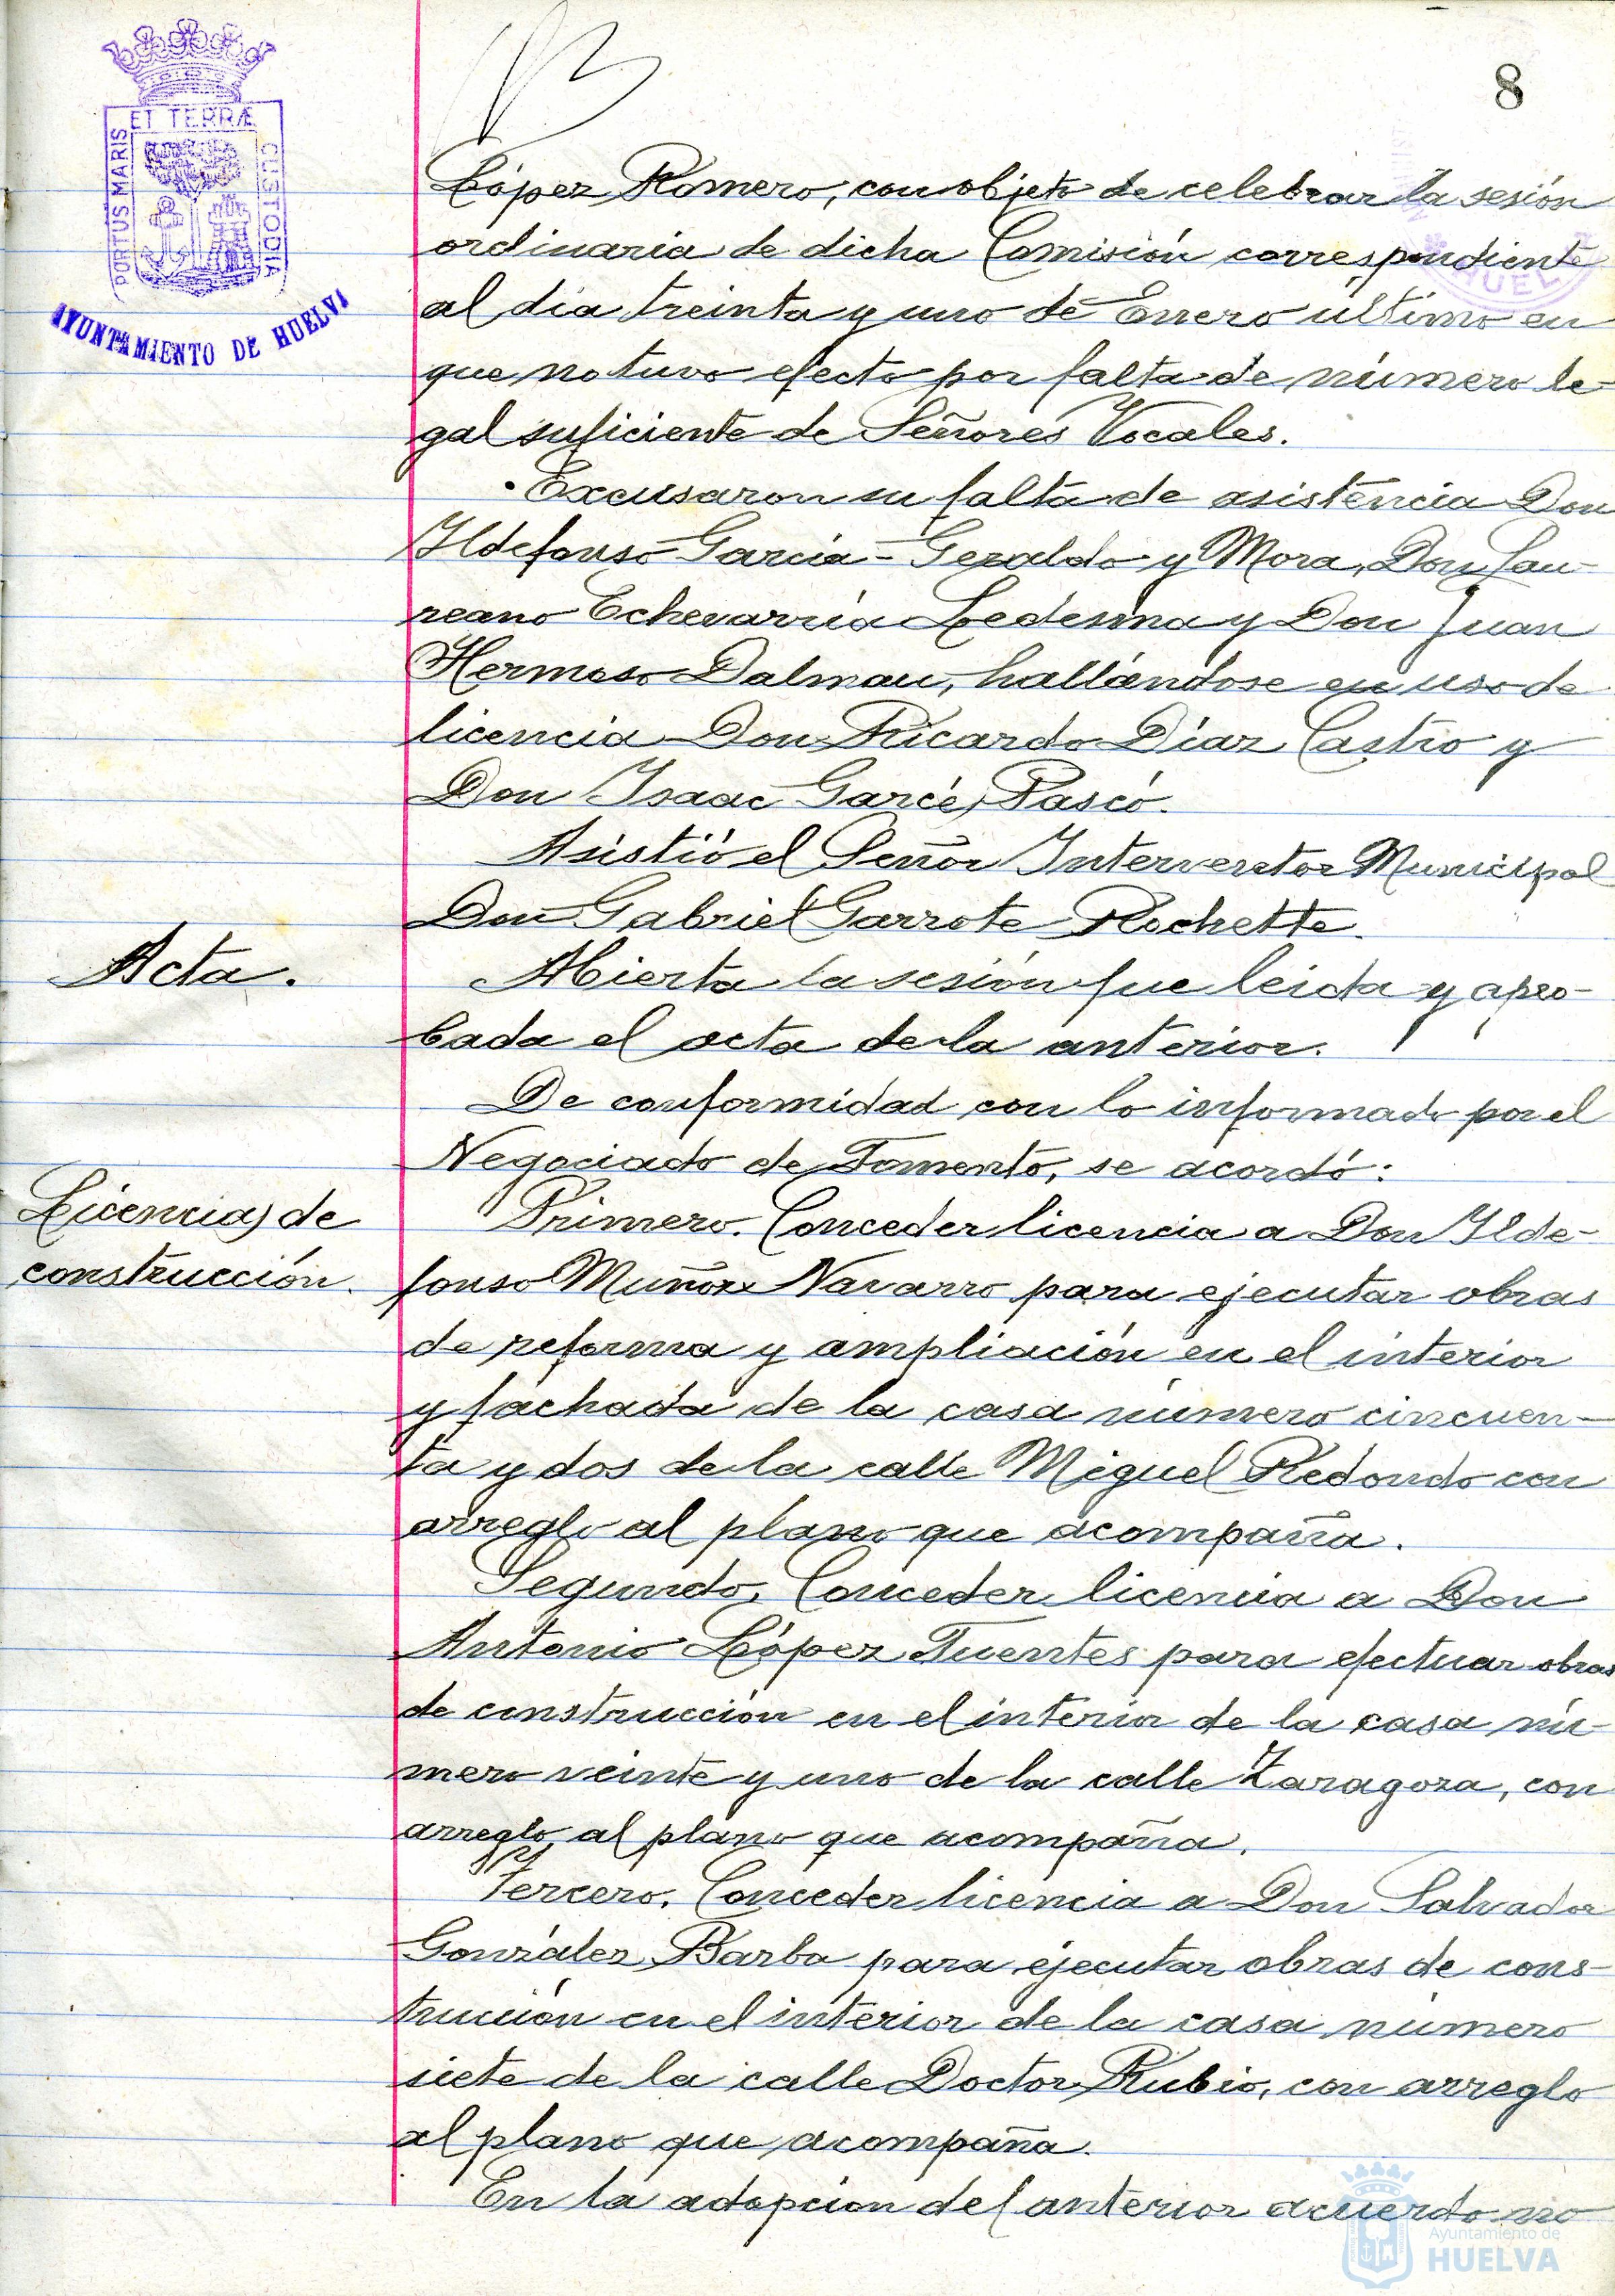 8
ET TERRÆ
PORTUS MARIS
CUSTODIA
AYUNTAMIENTO DE HUELVA
López Romero, con objeto de celebrar la sesión
ordinaria de dicha Comisión correspondiente
al día treinta y uno de Enero último en
que no tuvo efecto por falta de número le-
gal suficiente de Señores Vocales.
Excusaron su falta de asistencia Don
Ildefonso García-Geraldo y Mora, Don Lau-
reano Echevarría Ledesma y Don Juan
Hermoso Dalmau, hallándose en uso de
licencia Don Ricardo Díaz Castro y
Don Isaac Garcés Pascó.
Asistió el Señor Interventor Municipal
Don Gabriel Garrote Rochette.
Acta.
Abierta la sesión fue leida y apro-
bada el acta de la anterior.
De conformidad con lo informado por el
Negociado de Fomento, se acordó:
Licencias de
construcción.
Primero. Conceder licencia a Don Ilde-
fonso Muñoz Navarro para ejecutar obras
de reforma y ampliación en el interior
y fachada de la casa número cincuen-
ta y dos de la calle Miguel Redondo con
arreglo al plano que acompaña.
Segundo. Conceder licencia a Don
Antonio López Fuentes para efectuar obras
de construcción en el interior de la casa nú-
mero veinte y uno de la calle Zaragoza, con
arreglo al plano que acompaña.
Tercero. Conceder licencia a Don Salvador
González Barba para ejecutar obras de cons-
trucción en el interior de la casa número
siete de la calle Doctor Rubio, con arreglo
al plano que acompaña.
En la adopcion del anterior acuerdo no
Ayuntamiento de
HUELVA